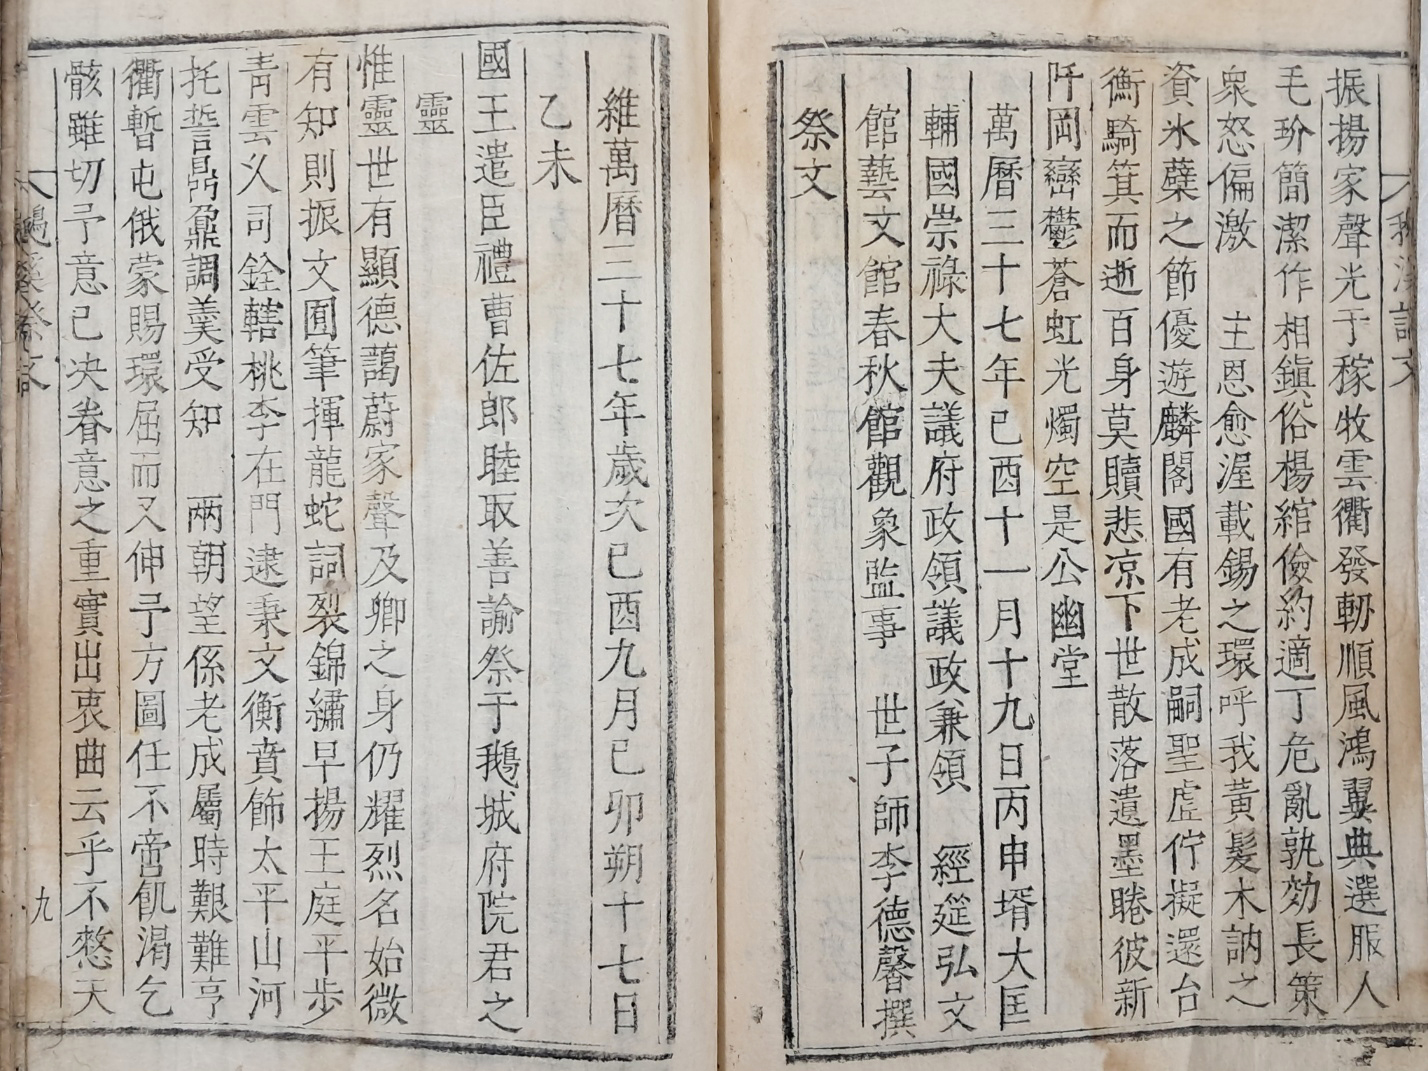 振揚家聲光于稼牧雲衢發軔順風鴻翼典選服人
毛玠簡潔作相鎮俗楊綰儉約適丁危亂孰効長策
衆怒偏激 主恩愈渥載錫之環呼我黃髮木訥之
資氷蘗之節優遊麟閣國有老成嗣聖虛佇擬還台
衡騎箕而逝百身莫贖悲凉下世散落遺墨睠彼新
阡岡巒欝蒼虹光燭空是公幽堂
萬曆三十七年己酉十一月十九日丙申壻大匡
輔國崇祿大夫議府政領議政兼領 經筵弘文
館藝文館春秋館觀象監事 世子師李德馨撰
祭文
維萬曆三十七年歲次己酉九月己卯朔十七日
乙未
國王遣臣禮曹佐郎睦取善諭祭于鵝城府院君之
靈
惟靈世有顯德藹蔚家聲及卿之身仍耀烈名始微
有知則振文囿筆揮龍蛇詞裂錦繡早揚王庭平步
靑雲乂司銓轄桃李在門逮秉文衡賁飾太平山河
托誓鼎鼐調羹受知 兩朝望係老成屬時艱難亨
衢暫屯俄蒙賜環屈而又伸予方圖任不啻飢渴乞
骸雖切予意已决眷意之重實出衷曲云乎不憗天
鵝溪祭文
九